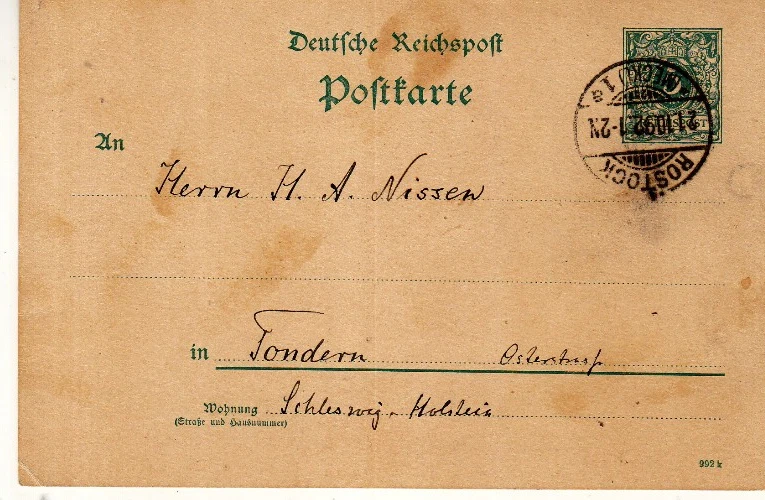 Deutsche Reichspost
Postkarte
ROSTOCK
(MECKL) 1
a
21.10.92.1-2N
REICHSPOST
An
Herrn H. A. Nissen
in Tondern Osterstraße
Wohnung Schleswig-Holstein
(Straße und Hausnummer)
992 k